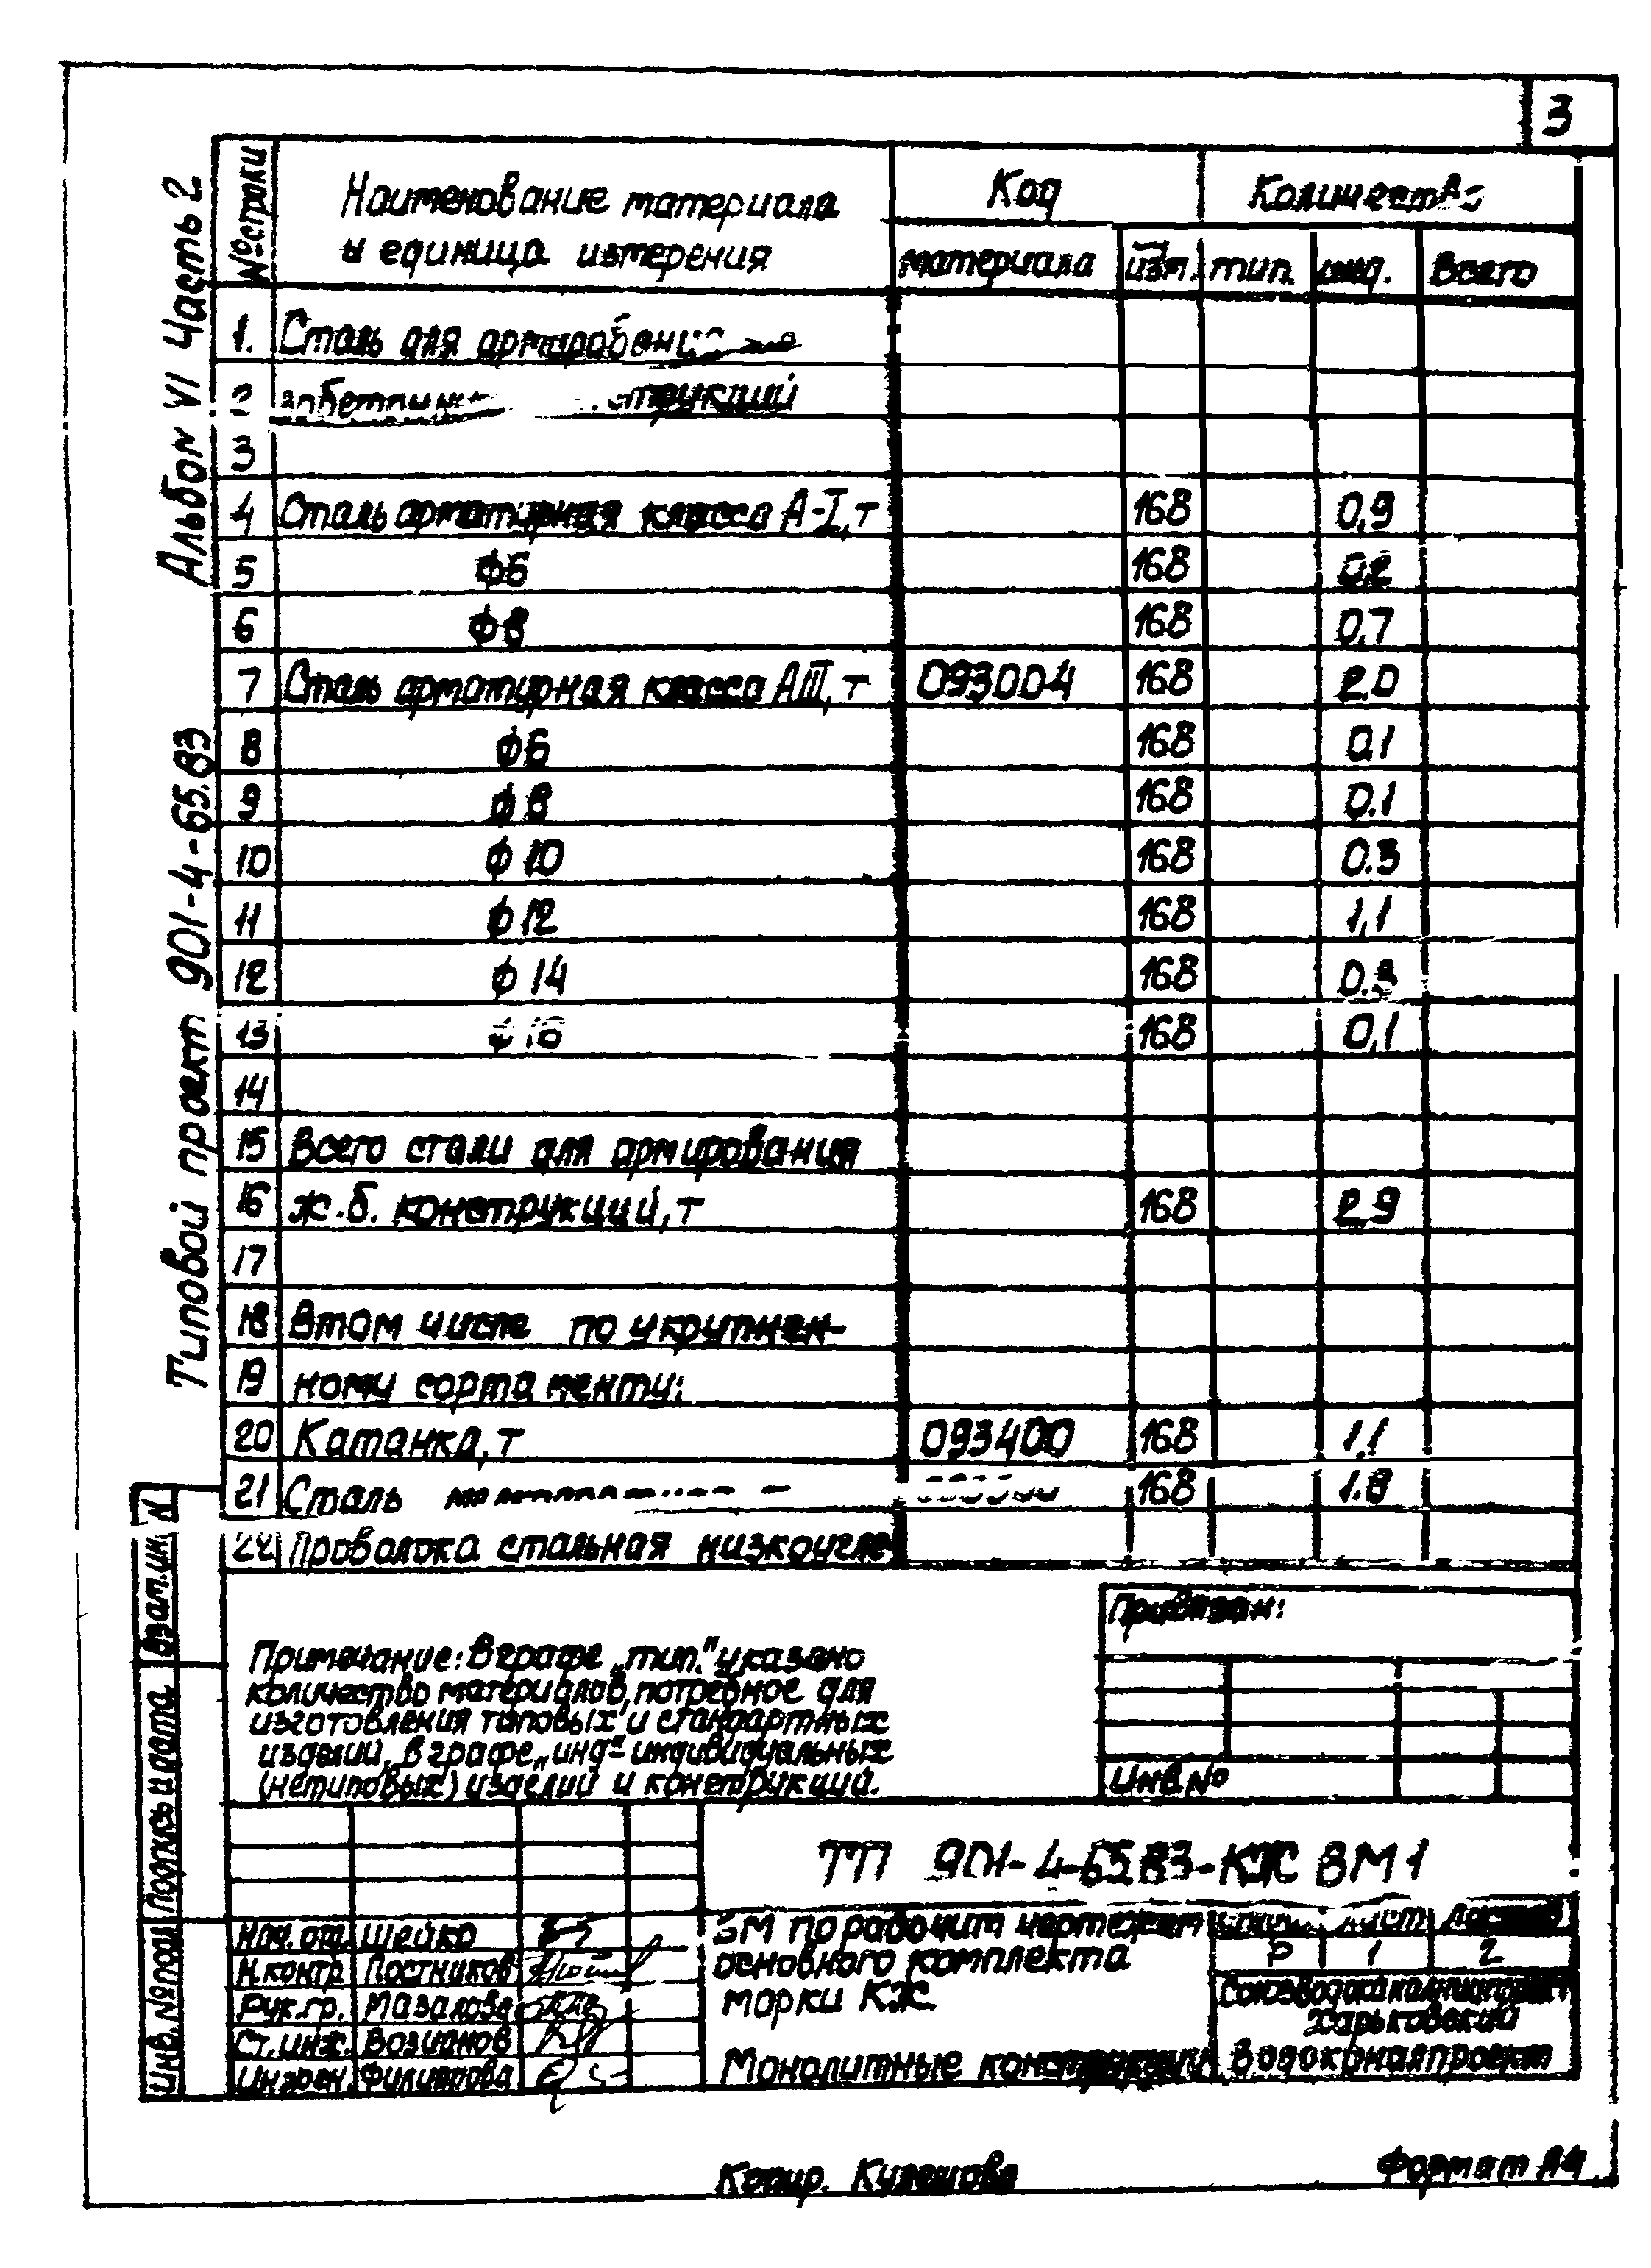 3
Альбом VI Часть 2
Типовой проект 901-4-65.83
№ строки
Наименование материала
и единица измерения
Код
Количество
материала
изм.
тип.
инд.
Всего
1. Сталь для армирования
2
3
4 Сталь арматурная класса А-I, т 168 0,9
5 ф6 168 0,2
6 ф8 168 0,7
7 Сталь арматурная класса АIII, т 093004 168 2.0
8 ф6 168 0,1
9 ф8 168 0.1
10 ф10 168 0.3
11 ф12 168 1,1
12 ф14 168 0.3
13 ф16 168 0,1
14
15 Всего стали для армирования
16 ж.б. конструкций, т 168 2,9
17
18 В том числе по укрупнен-
19 ному сортаменту:
20 Катанка, т 093400 168 1.1
21 Сталь 168 1.8
22 Проволока стальная низкоугле-
Примечание: В графе „тип." указано
количество материалов, потребное для
изготовления типовых и стандартных
изделий, в графе „инд"- индивидуальных
(нетиповых) изделий и конструкций.
Привязан:
Инв.№
Взам.инв. N
Подпись и дата
Инв.№подл
ТП 901-4-65.83-КЖ ВМ1
Нач. от. Шейко
Н.контр. Постников
Рук.гр. Мазалова
Ст.инж. Возианов
Инжен. Филиппова
ВМ по рабочим чертежам
основного комплекта
марки КЖ.
Монолитные конструкции
Лист
Р 1 2
Союзводоканалниипроект
Харьковский
Водоканалпроект
Копир. Кулешова
Формат А4